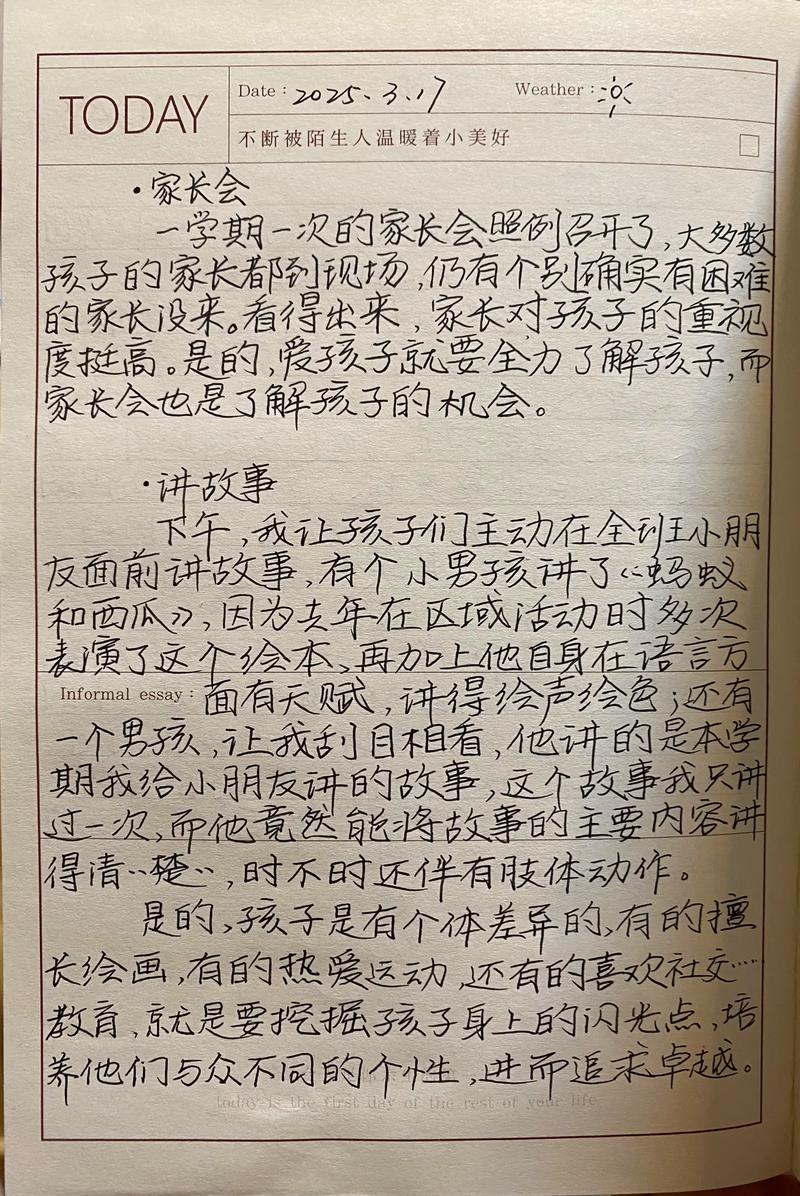 TODAY
Date：2025.3.17 Weather：
不断被陌生人温暖着小美好
·家长会
一学期一次的家长会照例召开了,大多数
孩子的家长都到现场,仍有个别确实有困难
的家长没来。看得出来,家长对孩子的重视
度挺高。是的,爱孩子就要全力了解孩子,而
家长会也是了解孩子的机会。
·讲故事
下午,我让孩子们主动在全班小朋
友面前讲故事,有个小男孩讲了《蚂蚁
和西瓜》,因为去年在区域活动时多次
表演了这个绘本、再加上他自身在语言方
Informal essay：面有天赋,讲得绘声绘色；还有
一个男孩,让我刮目相看,他讲的是本学
期我给小朋友讲的故事,这个故事我只讲
过一次,而他竟然能将故事的主要内容讲
得清清楚楚,时不时还伴有肢体动作。
是的,孩子是有个体差异的,有的擅
长绘画,有的热爱运动,还有的喜欢社交……
教育,就是要挖掘孩子身上的闪光点,培
养他们与众不同的个性,进而追求卓越。
today is the first day of the rest of your life